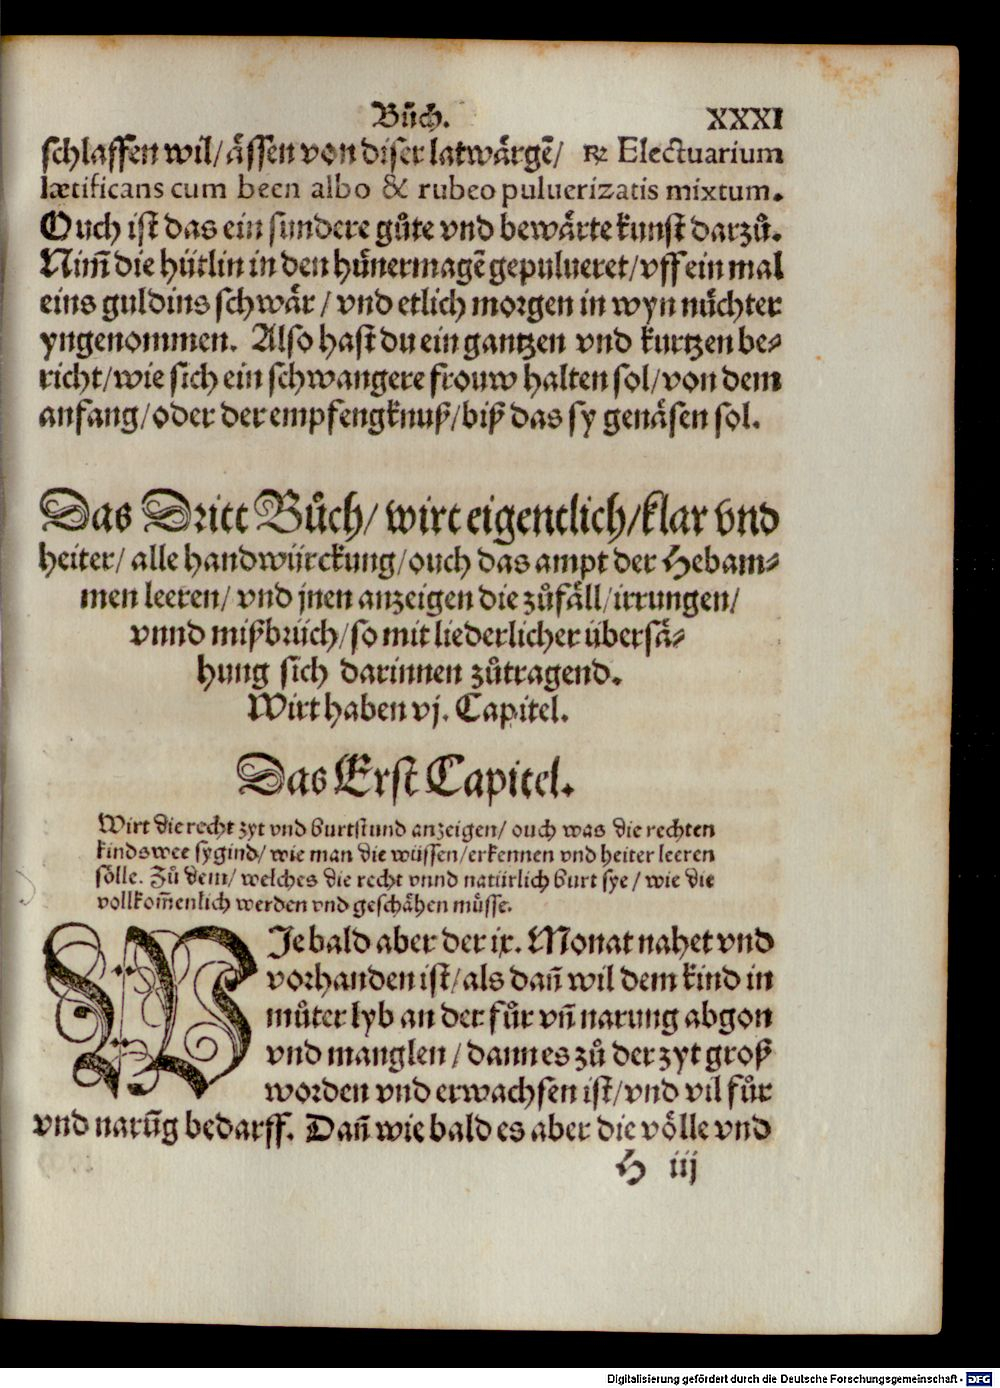 Bůch. XXXI
schlaffen wil/ ässen von diser latwärgẽ/ ℞ Electuarium
lætificans cum been albo & rubeo puluerizatis mixtum.
Ouch ist das ein sundere gůte vnd bewärte kunst darzů.
Nim̃ die hütlin in den hünermagẽ gepulueret/ vff ein mal
eins guldins schwär / vnd etlich morgen in wyn nüchter
yngenommen. Also hast du ein gantzen vnd kurtzen be-
richt/ wie sich ein schwangere frouw halten sol/ von dem
anfang/ oder der empfengknuß/ biß das sy genäsen sol.
Das Dritt Bůch/ wirt eigentlich/ klar vnd
heiter/ alle handwürckung/ ouch das ampt der Hebam-
men leeren/ vnd jnen anzeigen die zůfäll/ irrungen/
vnnd mißbrüch/ so mit liederlicher übersä-
hung sich darinnen zůtragend.
Wirt haben vj. Capitel.
Das Erst Capitel.
Wirt die recht zyt vnd burtstund anzeigen/ ouch was die rechten
kindswee sygind/ wie man die wüssen/ erkennen vnd heiter leeren
sölle. Zů dem/ welches die recht vnnd natürlich burt sye / wie die
vollkom̃enlich werden vnd geschähen müsse.
WIe bald aber der ix. Monat nahet vnd
vorhanden ist/ als dañ wil dem kind in
můter lyb an der fůr vñ narung abgon
vnd manglen / dann es zů der zyt groß
worden vnd erwachsen ist/ vnd vil fůr
vnd narũg bedarff. Dañ wie bald es aber die völle vnd
H iij
Digitalisierung gefördert durch die Deutsche Forschungsgemeinschaft - DFG